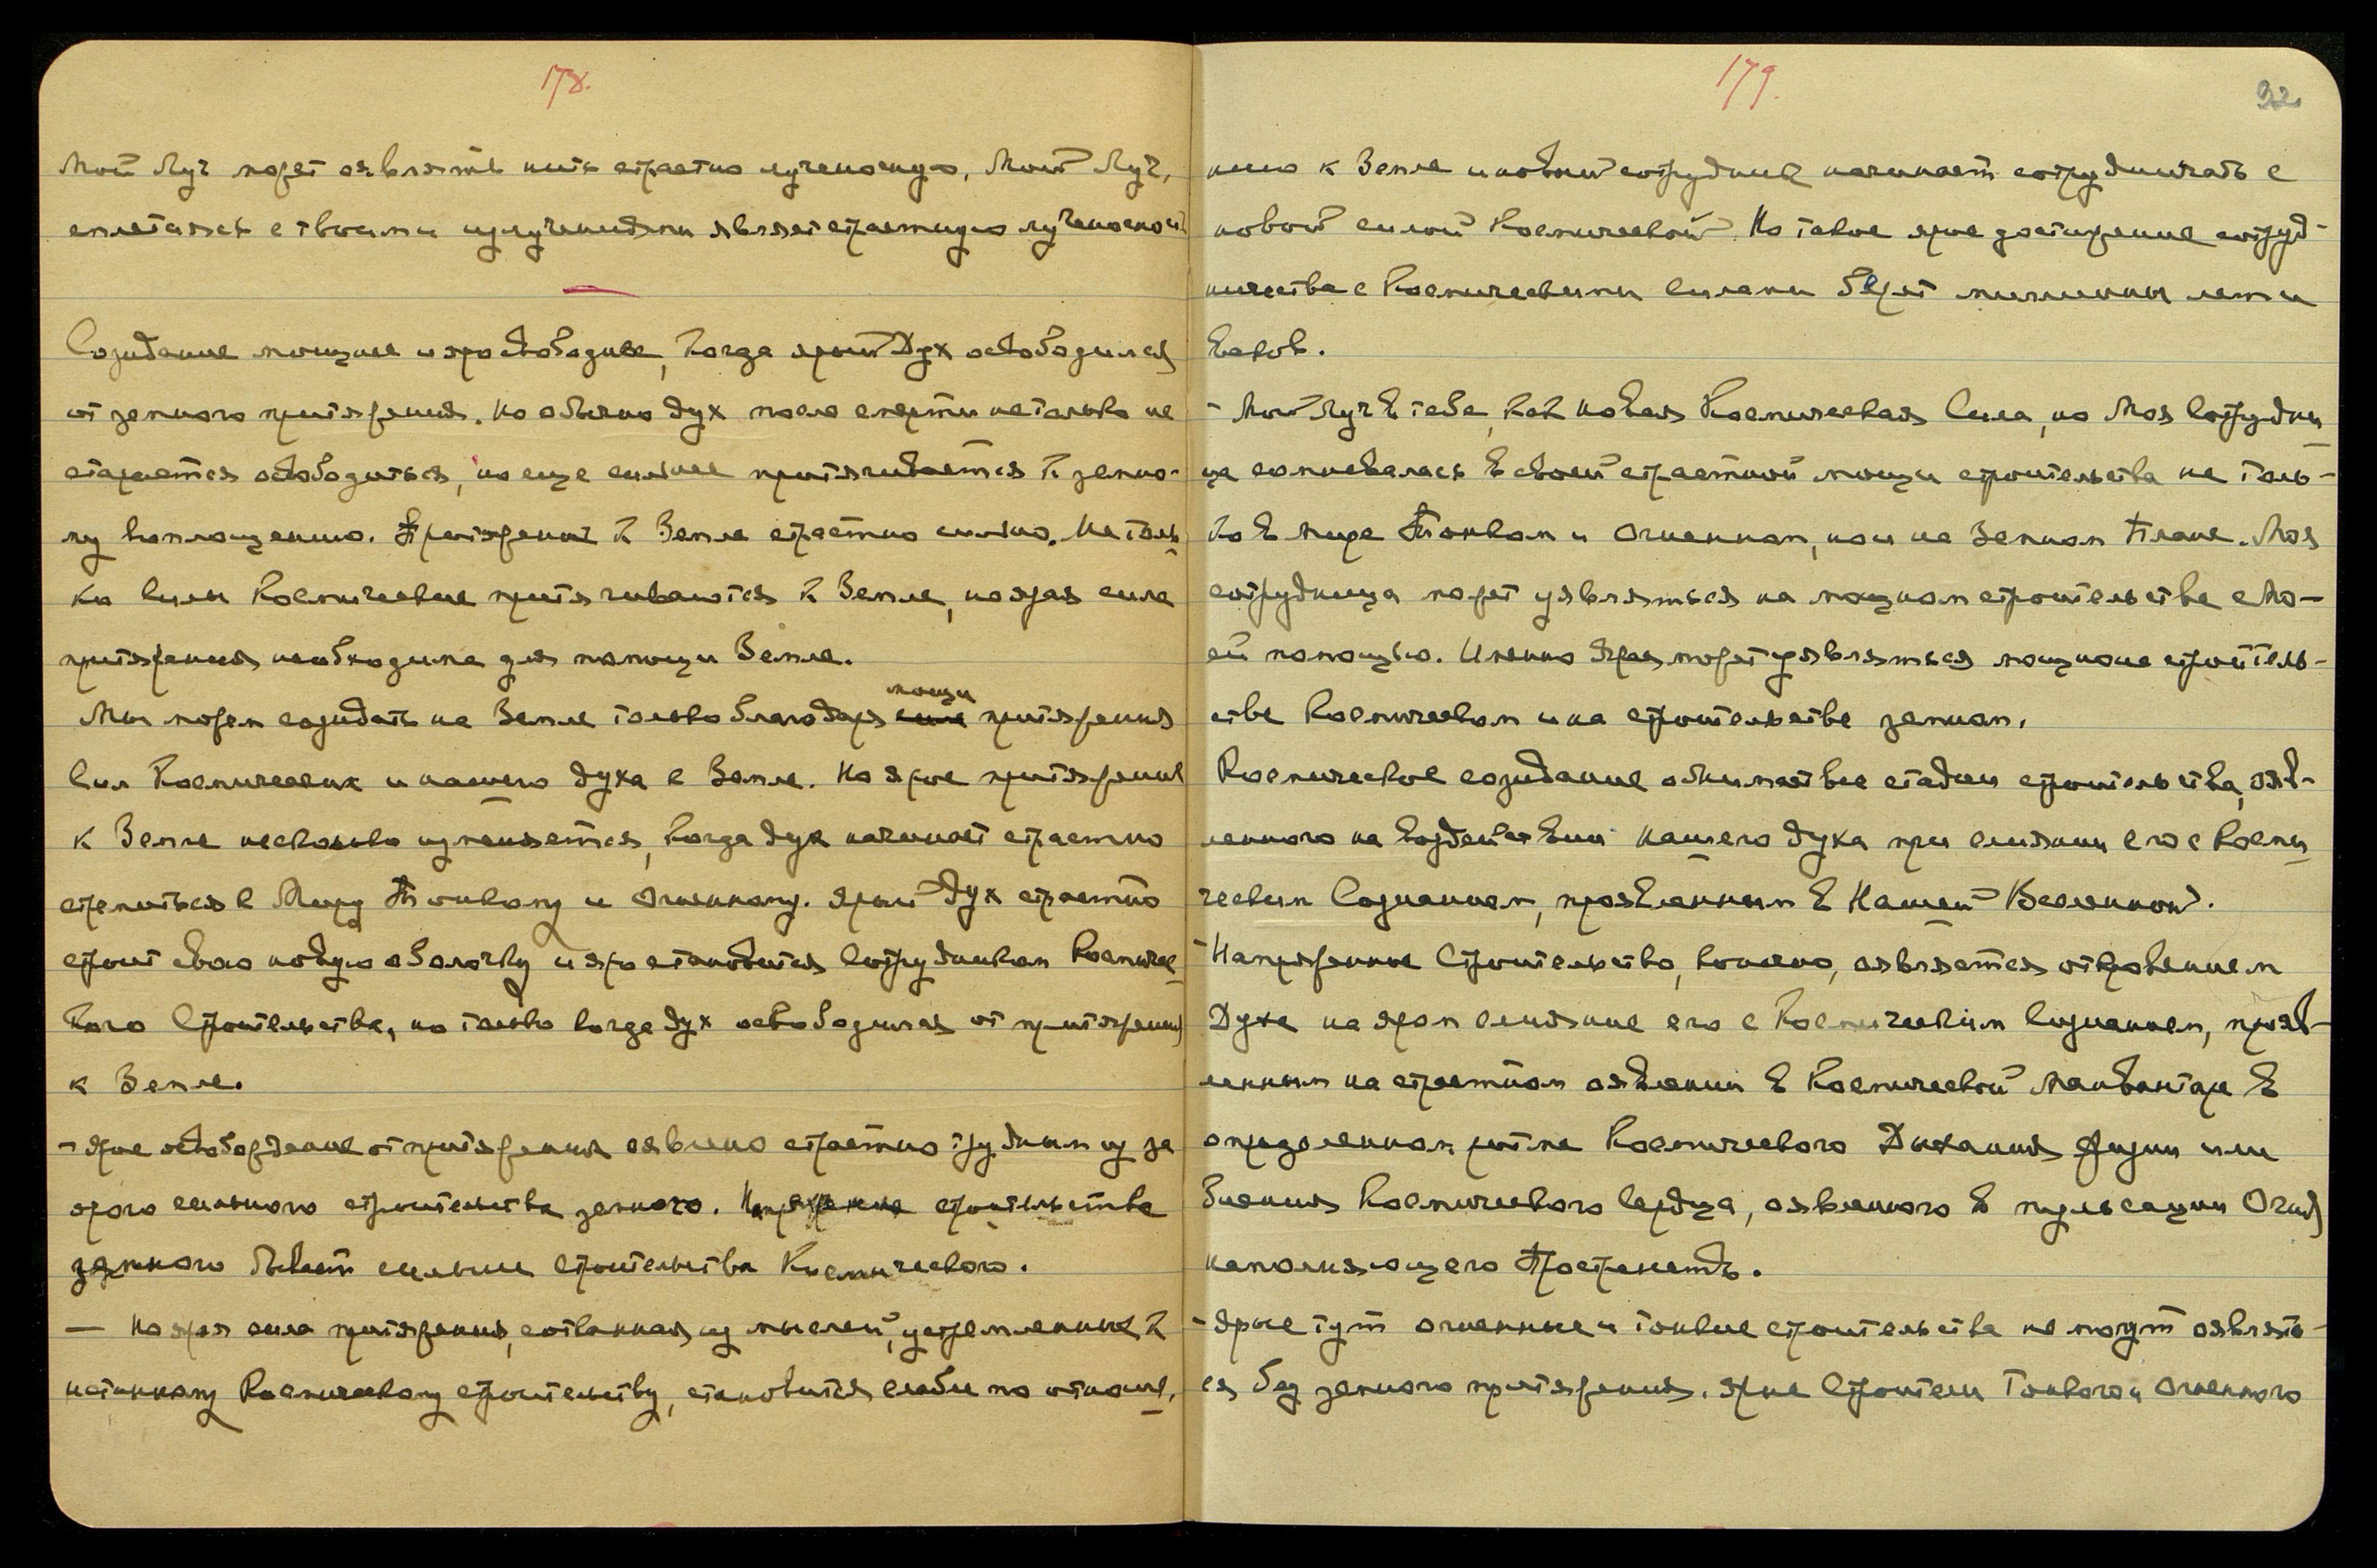 178.
Мой Луч может оявлять нить страстно лученосную, Мой Луч,
сплетаясь с твоими излучениями являет страстную лученосность
Созидание мощнее и яро свободнее, когда ярый Дух освободился
от земного притяжения. Но обычно дух после смерти не только не
старается освободиться, но еще сильнее притягивается к земно-
му воплощению. Притяжение к Земле страстно сильно. Не толь
ко Силы Космические притягиваются к Земле, но ярая сила
притяжения необходима для помощи Земле.
Мы можем созидать на Земле только благодаря мощи притяжения
Сил Космических и нашего духа к Земле. Но ярое притяжение
к Земле несколько изменяется, когда дух начинает страстно
стремиться к Миру Тонкому и Огненному. Ярый Дух страстно
строит свою новую оболочку и яро становится Сотрудником Космичес
кого Строительства, но только когда дух освободился от притяжения
к Земле.
– Ярое освобождение от притяжения оявлено страстно трудным из за
ярого сильного строительства земного. Напряжение строительства
земного бывает сильнее строительства Космического.
— Но ярая сила притяжения, сотканная из мыслей, устремленных к
истинному Космическому строительству, становится слабее по отноше,
179.
92
нию к Земле и новый сотрудник начинает сотрудничать с
новой силой Космической. Но такое ярое достижение сотруд-
ничества с Космическими Силами берет миллионы лет и
веков.
– Мой Луч в тебе, как новая Космическая Сила, но Моя Сотрудни
ца сомневалась в своей страстной мощи строительства не толь-
ко в мире Тонком и Огненном, но и на Земном Плане. Моя
сотрудница может уявляться на мощном строительстве с Мо-
ей помощью. Именно Ярая может уявляться мощно на строитель-
стве Космическом и на строительстве земном.
Космическое созидание обнимает все стадии строительства, ояв-
ленного на воздействии нашего духа при слиянии его с Косми
ческим Сознанием, проявленным в Нашей Вселенной.
– Напряженное Строительство, конечно, оявляется откровением
Духа на яром слиянии его с Космическим Сознанием, прояв-
ленным на страстном оявлении в Космической Манвантаре в
определенном ритме Космического Дыхания Жизни или
биения Космического Сердца, оявленного в пульсации Огня
наполняющего Пространство.
– Ярые тут огненные и тонкие строительства не могут оявлять-
ся без земного притяжения. Ярые Строители Тонкого и Огненного